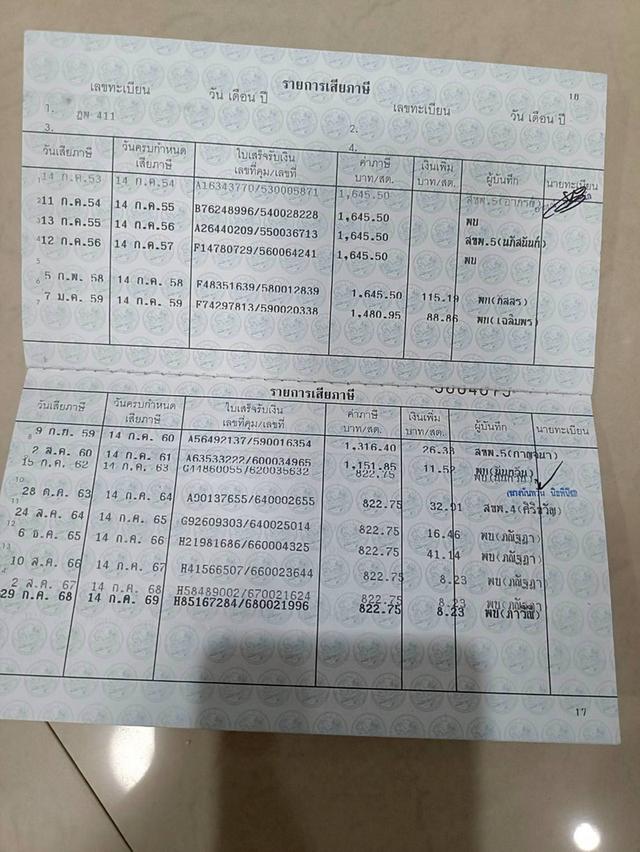 รายการเสียภาษี
18
เลขทะเบียน วัน เดือน ปี เลขทะเบียน วัน เดือน ปี
1. ฎพ 411 2.
3. 4.
วันเสียภาษี วันครบกำหนดเสียภาษี ใบเสร็จรับเงิน เลขที่คุม/เลขที่ ค่าภาษี บาท/สต. เงินเพิ่ม บาท/สต. ผู้บันทึก นายทะเบียน
1 14 ก.ค.53 14 ก.ค.54 A16343770/530005871 1,645.50 สขพ.5(อาภรณ์)
2 11 ก.ค.54 14 ก.ค.55 B76248996/540028228 1,645.50 พบ
3 13 ก.ค.55 14 ก.ค.56 A26440209/550036713 1,645.50 สขพ.5(นภัสนันท์)
4 12 ก.ค.56 14 ก.ค.57 F14780729/560064241 1,645.50 พบ
5
6 5 ก.พ 58 14 ก.ค. 58 F48351639/580012839 1,645.50 115.19 พบ(ภัสสร)
7 7 ม.ค. 59 14 ก.ค. 59 F74297813/590020338 1,480.95 88.86 พบ(เฉลิมพร)
รายการเสียภาษี
วันเสียภาษี วันครบกำหนดเสียภาษี ใบเสร็จรับเงิน เลขที่คุม/เลขที่ ค่าภาษี บาท/สต. เงินเพิ่ม บาท/สต. ผู้บันทึก นายทะเบียน
8 9 ก.ย. 59 14 ก.ค. 60 A56492137/590016354 1,316.40 26.33 สขพ.5(กาญจนา)
2 ส.ค. 60 14 ก.ค. 61 A63533222/600034965 1,151.85 11.52
15 ก.ค. 62 14 ก.ค. 63 G14860055/620035632 822.75
10
28 ต.ค. 63 14 ก.ค. 64 A90137655/640002655 822.75 32.91 สขพ.4(ศิริขวัญ)
24 ส.ค. 64 14 ก.ค. 65 G92609303/640025014 822.75 16.46 พบ(ภณัฐฎา)
12 6 ธ.ค. 65 14 ก.ค. 66 H21981686/660004325 822.75 41.14 พบ(ภณัฐฎา)
13
10 ส.ค. 66 14 ก.ค. 67 H41566507/660023644 822.75 8.23 พบ(ภณัฐฎา)
2 ส.ค. 67 14 ก.ค. 68 H58489002/670021624 822.75 8.23 พบ(ภณัฐฎา)
29 ก.ค. 68 14 ก.ค. 69 H85167284/680021996 822.75 8.23 พบ(ภาวิณี)
17